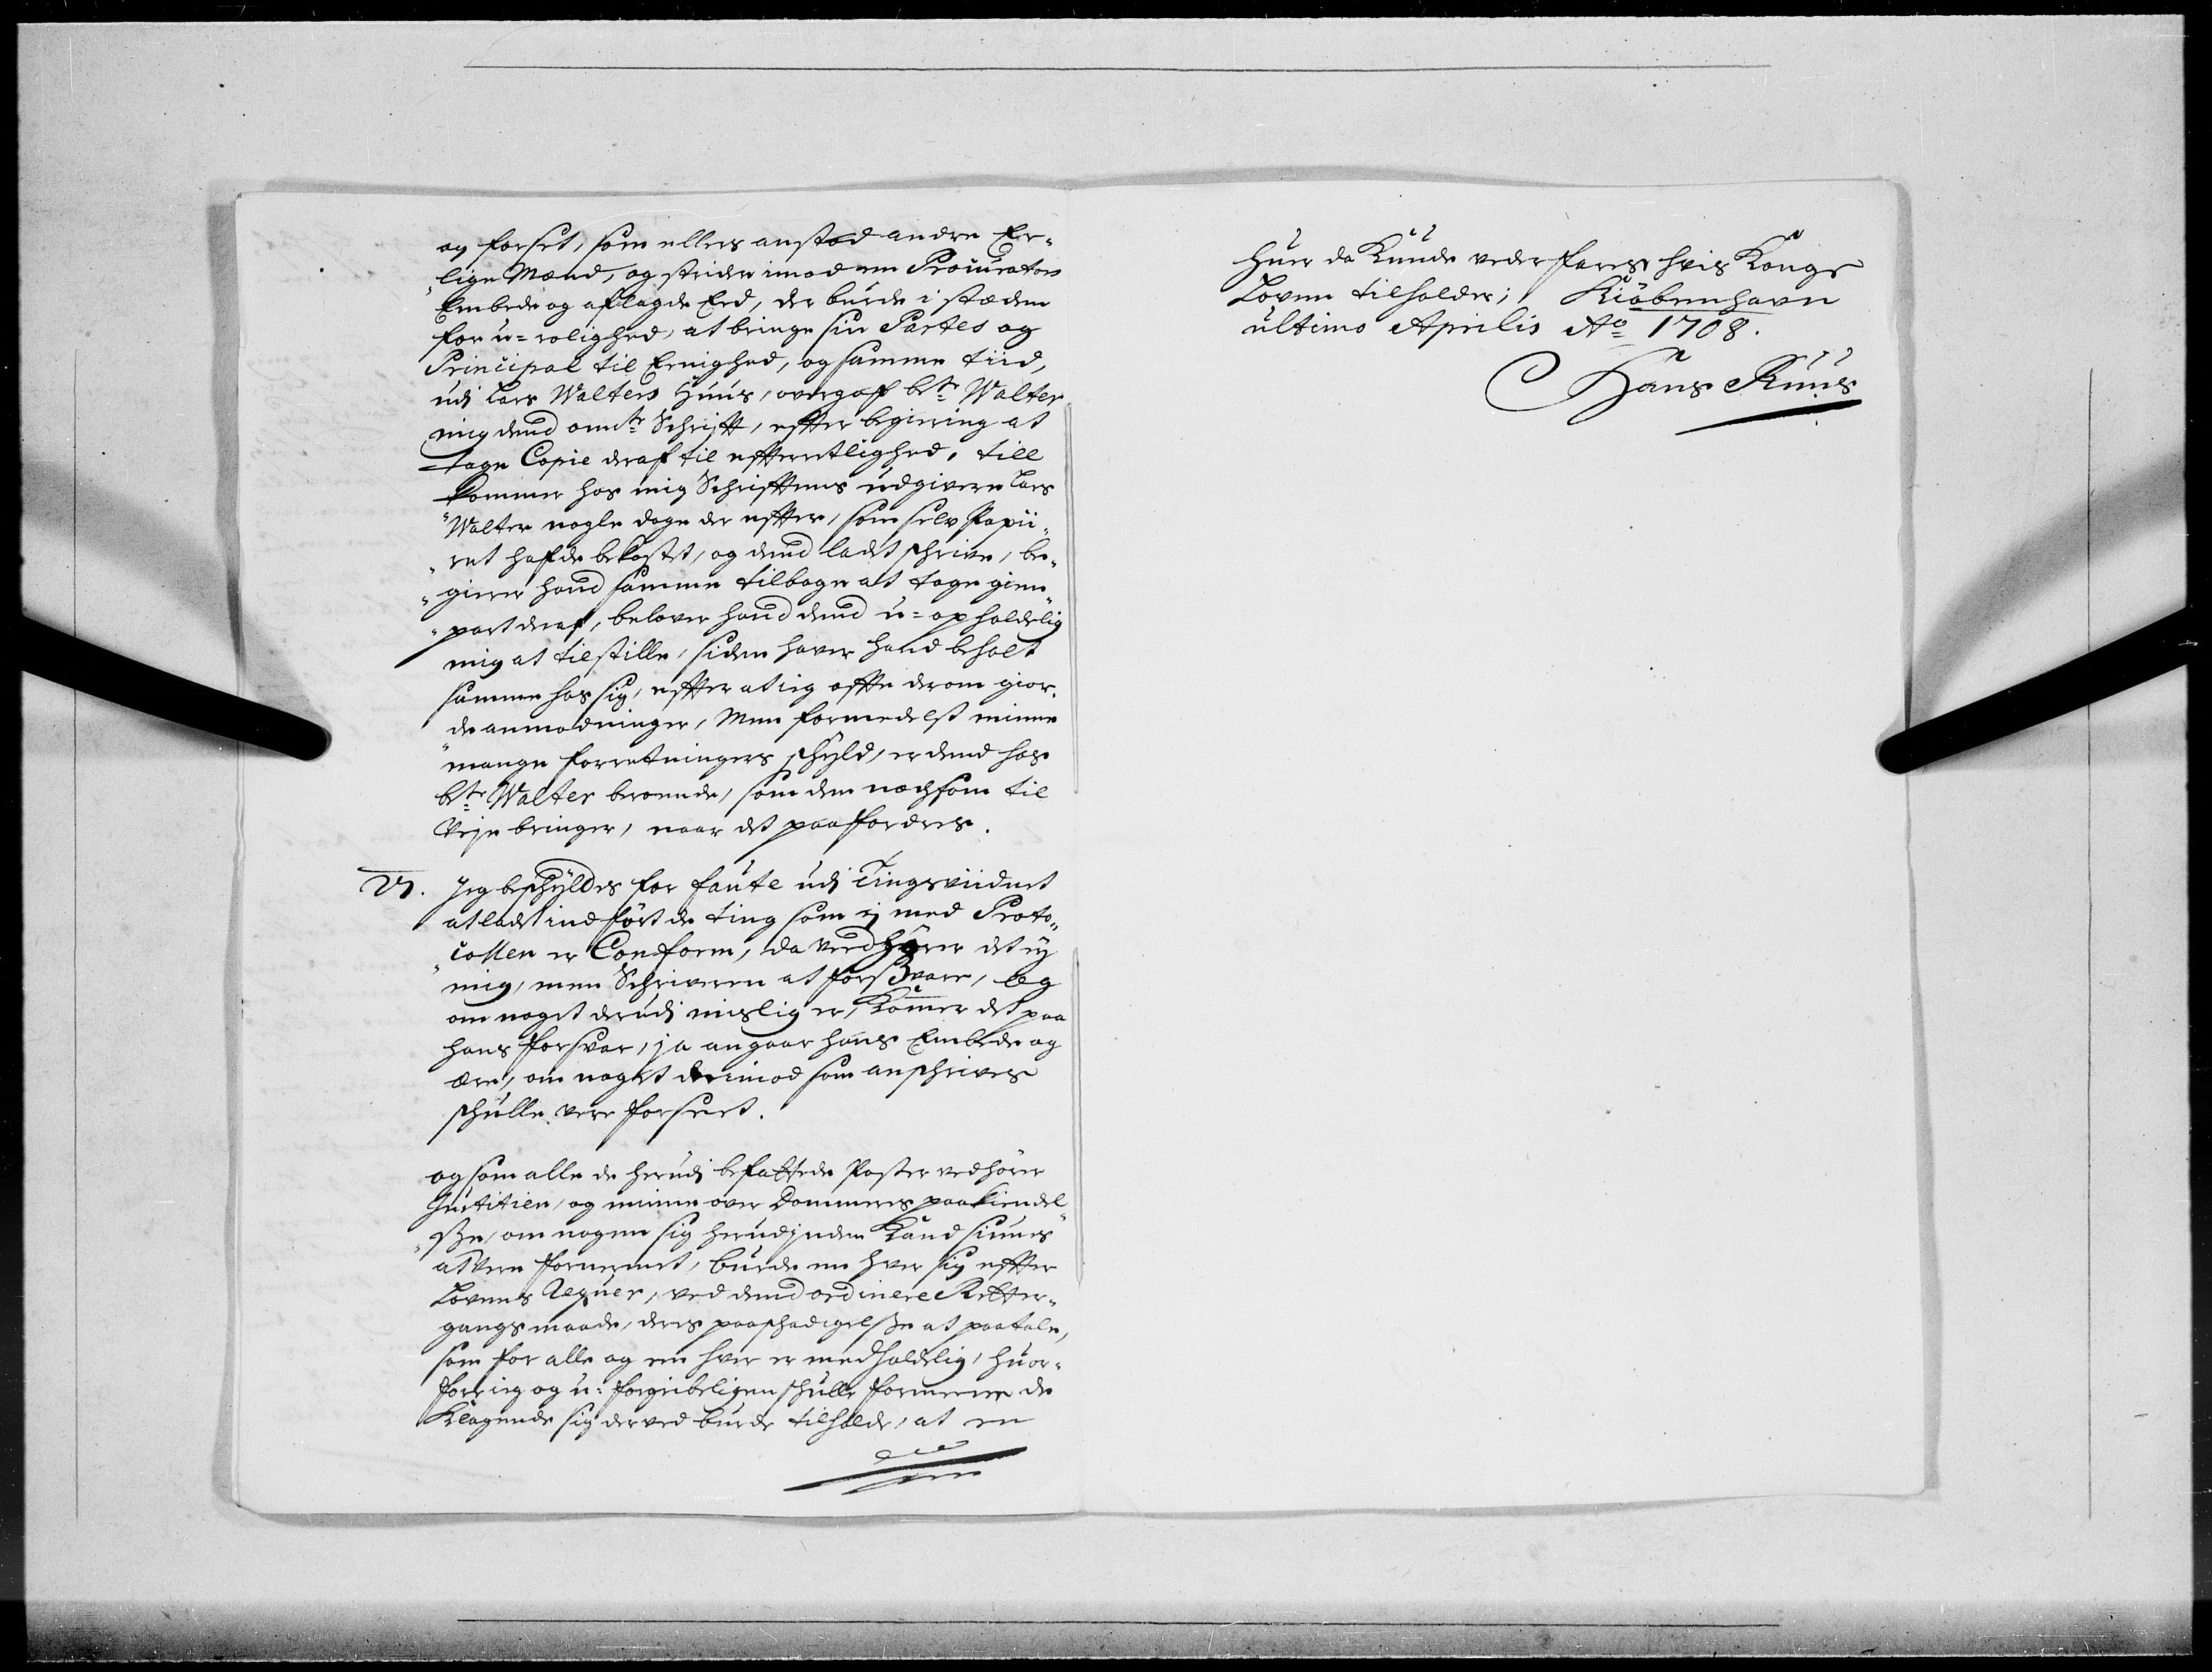 og forset, som ellers anstod andre Er-
lige Mænd, og strider imod em Procurators
Embede og aflagde Eed, der burde i stæden
for u-rolighed, at bringe sin Partes og
Principal til Eenighed, og samme tiid,
udi Lars Walters Huus, overgaf bte Walter
mig dend omte Schrifft, effter begiering at
tage Copie deraf til effterretlighed, till
kommer hos mig Schrifftens udgivere Lars
Walter nogle dage der effter, som selv Papii-
ret hafde bekostet, og dend ladet schrive, be-
gierer hand samme tilbage at tage gien-
part deraf, belover hand dend u-opholdelig
mig at tilstille, siden haver hand beholt
samme hos sig, effter at ieg offte derom gior-
de anmodninger, Men formedelst minne
mange forretningers schyld, er dend hos
bte Walter beroende, som den nochsom til
Veje bringer, naar det paafordres.
VI. Jeg beschyldes for faute udi Tingsviidnet
at ladet indført de ting som ej med Proto-
collen er Conform, da vedhører det ej
mig, men Schriveren at forsvare, og
om noget derudi mislig er, Kommer det paa
hans forsvar, ja angaar hans Embede og
ære, om noget derimod som anschrives
schulle vere forseet.
og som alle de herudi befattede Poster vedhører
Justitien, og minne over Dommeres paakiendel-
ße, om nogen sig herudinden Kand siunes
at vere fornermet, burde en hver sig effter
Lovens Regner, ved dend ordinere Retter-
gangs maade, deris paaschadigelße at paatale,
som for alle og en hver er medholdelig, huor-
for ieg og u-forgribeligen schulle formeene de
Klagende sig derved burde tilholde, at en
huer da Kunde vederfares hvis Kongs
Loven tilholder; Kiøbenhavn
ultimo Aprilis Ao 1708.
Hans Ruus